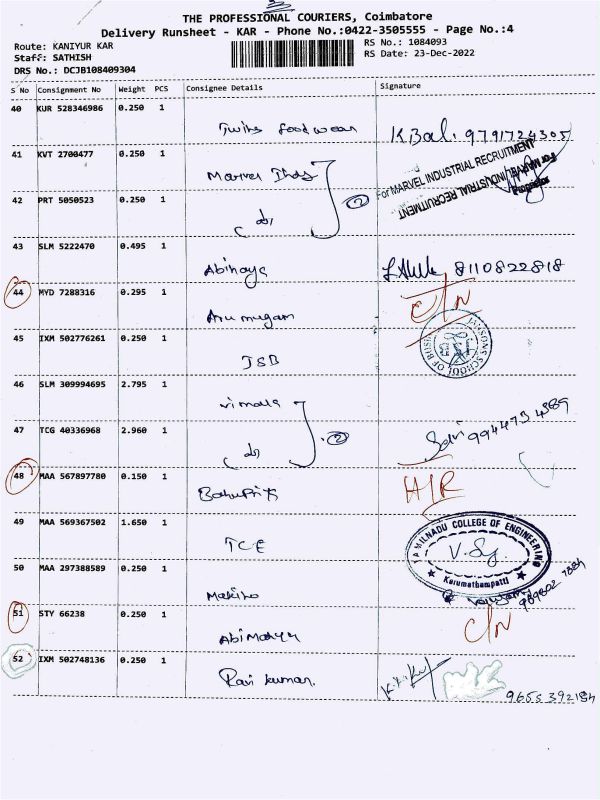 THE PROFESSIONAL COURIERS, Coimbatore
Delivery Runsheet - KAR - Phone No.:0422-3505555 - Page No.:4
Route: KANIYUR KAR
RS No.: 1084093
Staff: SATHISH
RS Date: 23-Dec-2022
DRS No.: DCJB108409304
S No Consignment No Weight PCS Consignee Details Signature
40 KUR 528346986 0.250 1
Twins footwear K.Bal. 9791724305
41 KVT 2700477 0.250 1
Marvel Inds
For MARVEL INDUSTRIAL RECRUITMENT
For MARVEL INDUSTRIAL RECRUITMENT
Proprietor
42 PRT 5050523 0.250 1
do 2
43 SLM 5222470 0.495 1
Abinaya 8110822818
44 MYD 7288316 0.295 1
Arumugam C/N
45 IXM 502776261 0.250 1
JSB
JANSONS SCHOOL OF BUSINESS
46 SLM 309994695 2.795 1
vimala
47 TCG 40336968 2.960 1
do 2 9944734389
48 MAA 567897780 0.150 1
H/R
49 MAA 569367502 1.650 1
TCE
TAMILNADU COLLEGE OF ENGINEERING
Karumathampatti
50 MAA 297388589 0.250 1
51 STY 66238 0.250 1
C/N
52 IXM 502748136 0.250 1
Ravi kumar. 9655392184